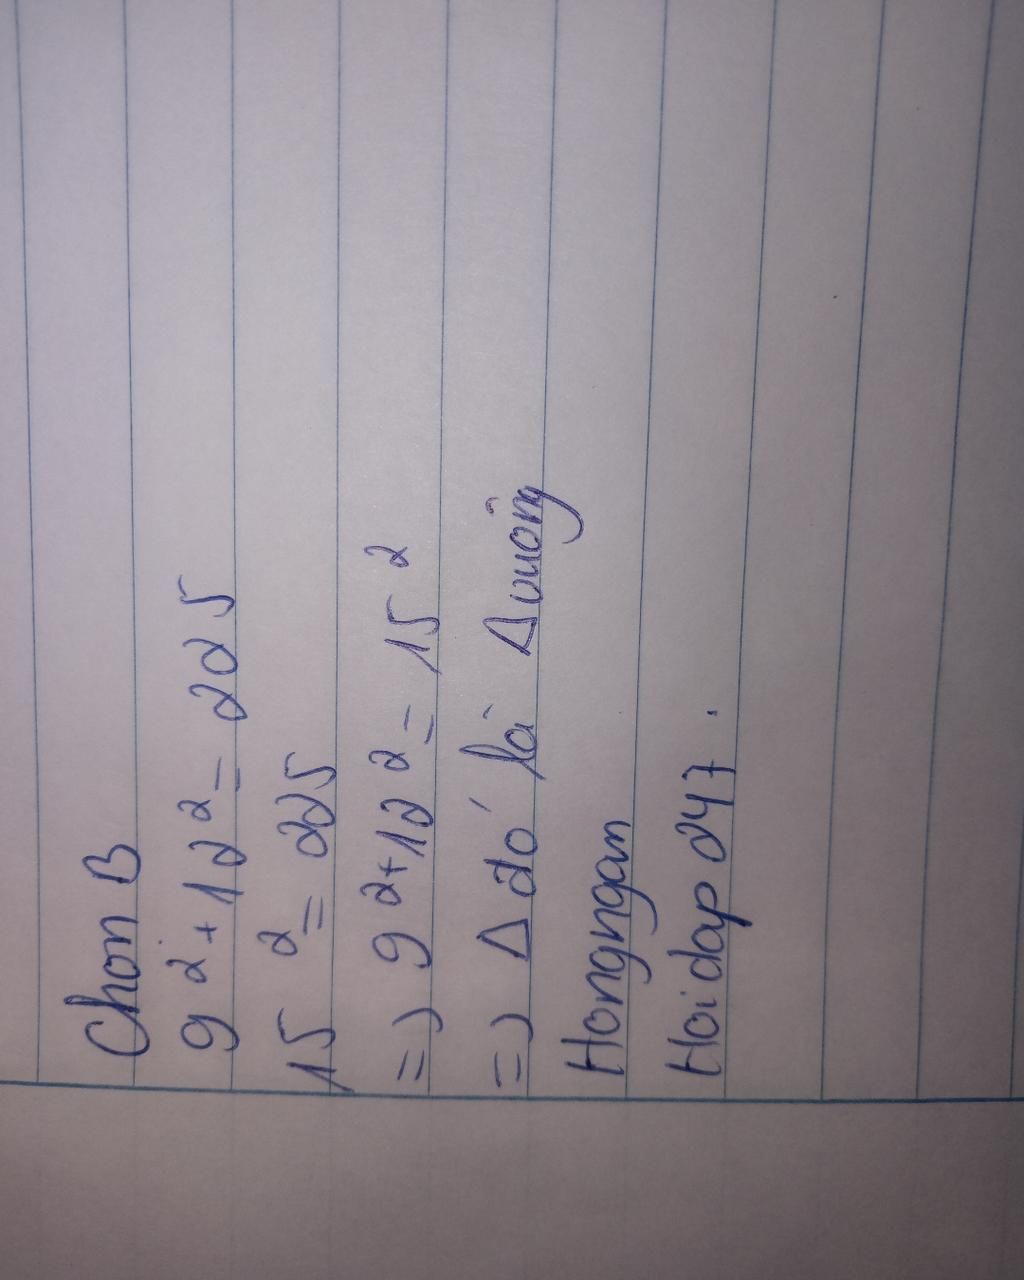 Chọn B
9² + 12² = 225
15² = 225
=) 9² + 12² = 15²
=) Δ đó là Δ vuông
Hongngan
Hoidap 247.